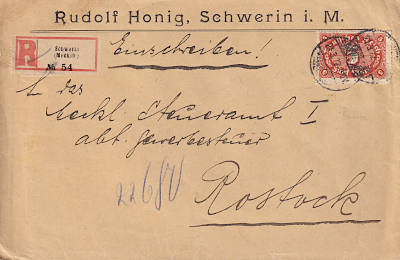 Rudolf Honig, Schwerin i. M.
Einschreiben!
R
Schwerin
(Mecklb.)
№ 54
An das
Meckl. Steueramt I
abt. Gewerbesteuer
Rostock